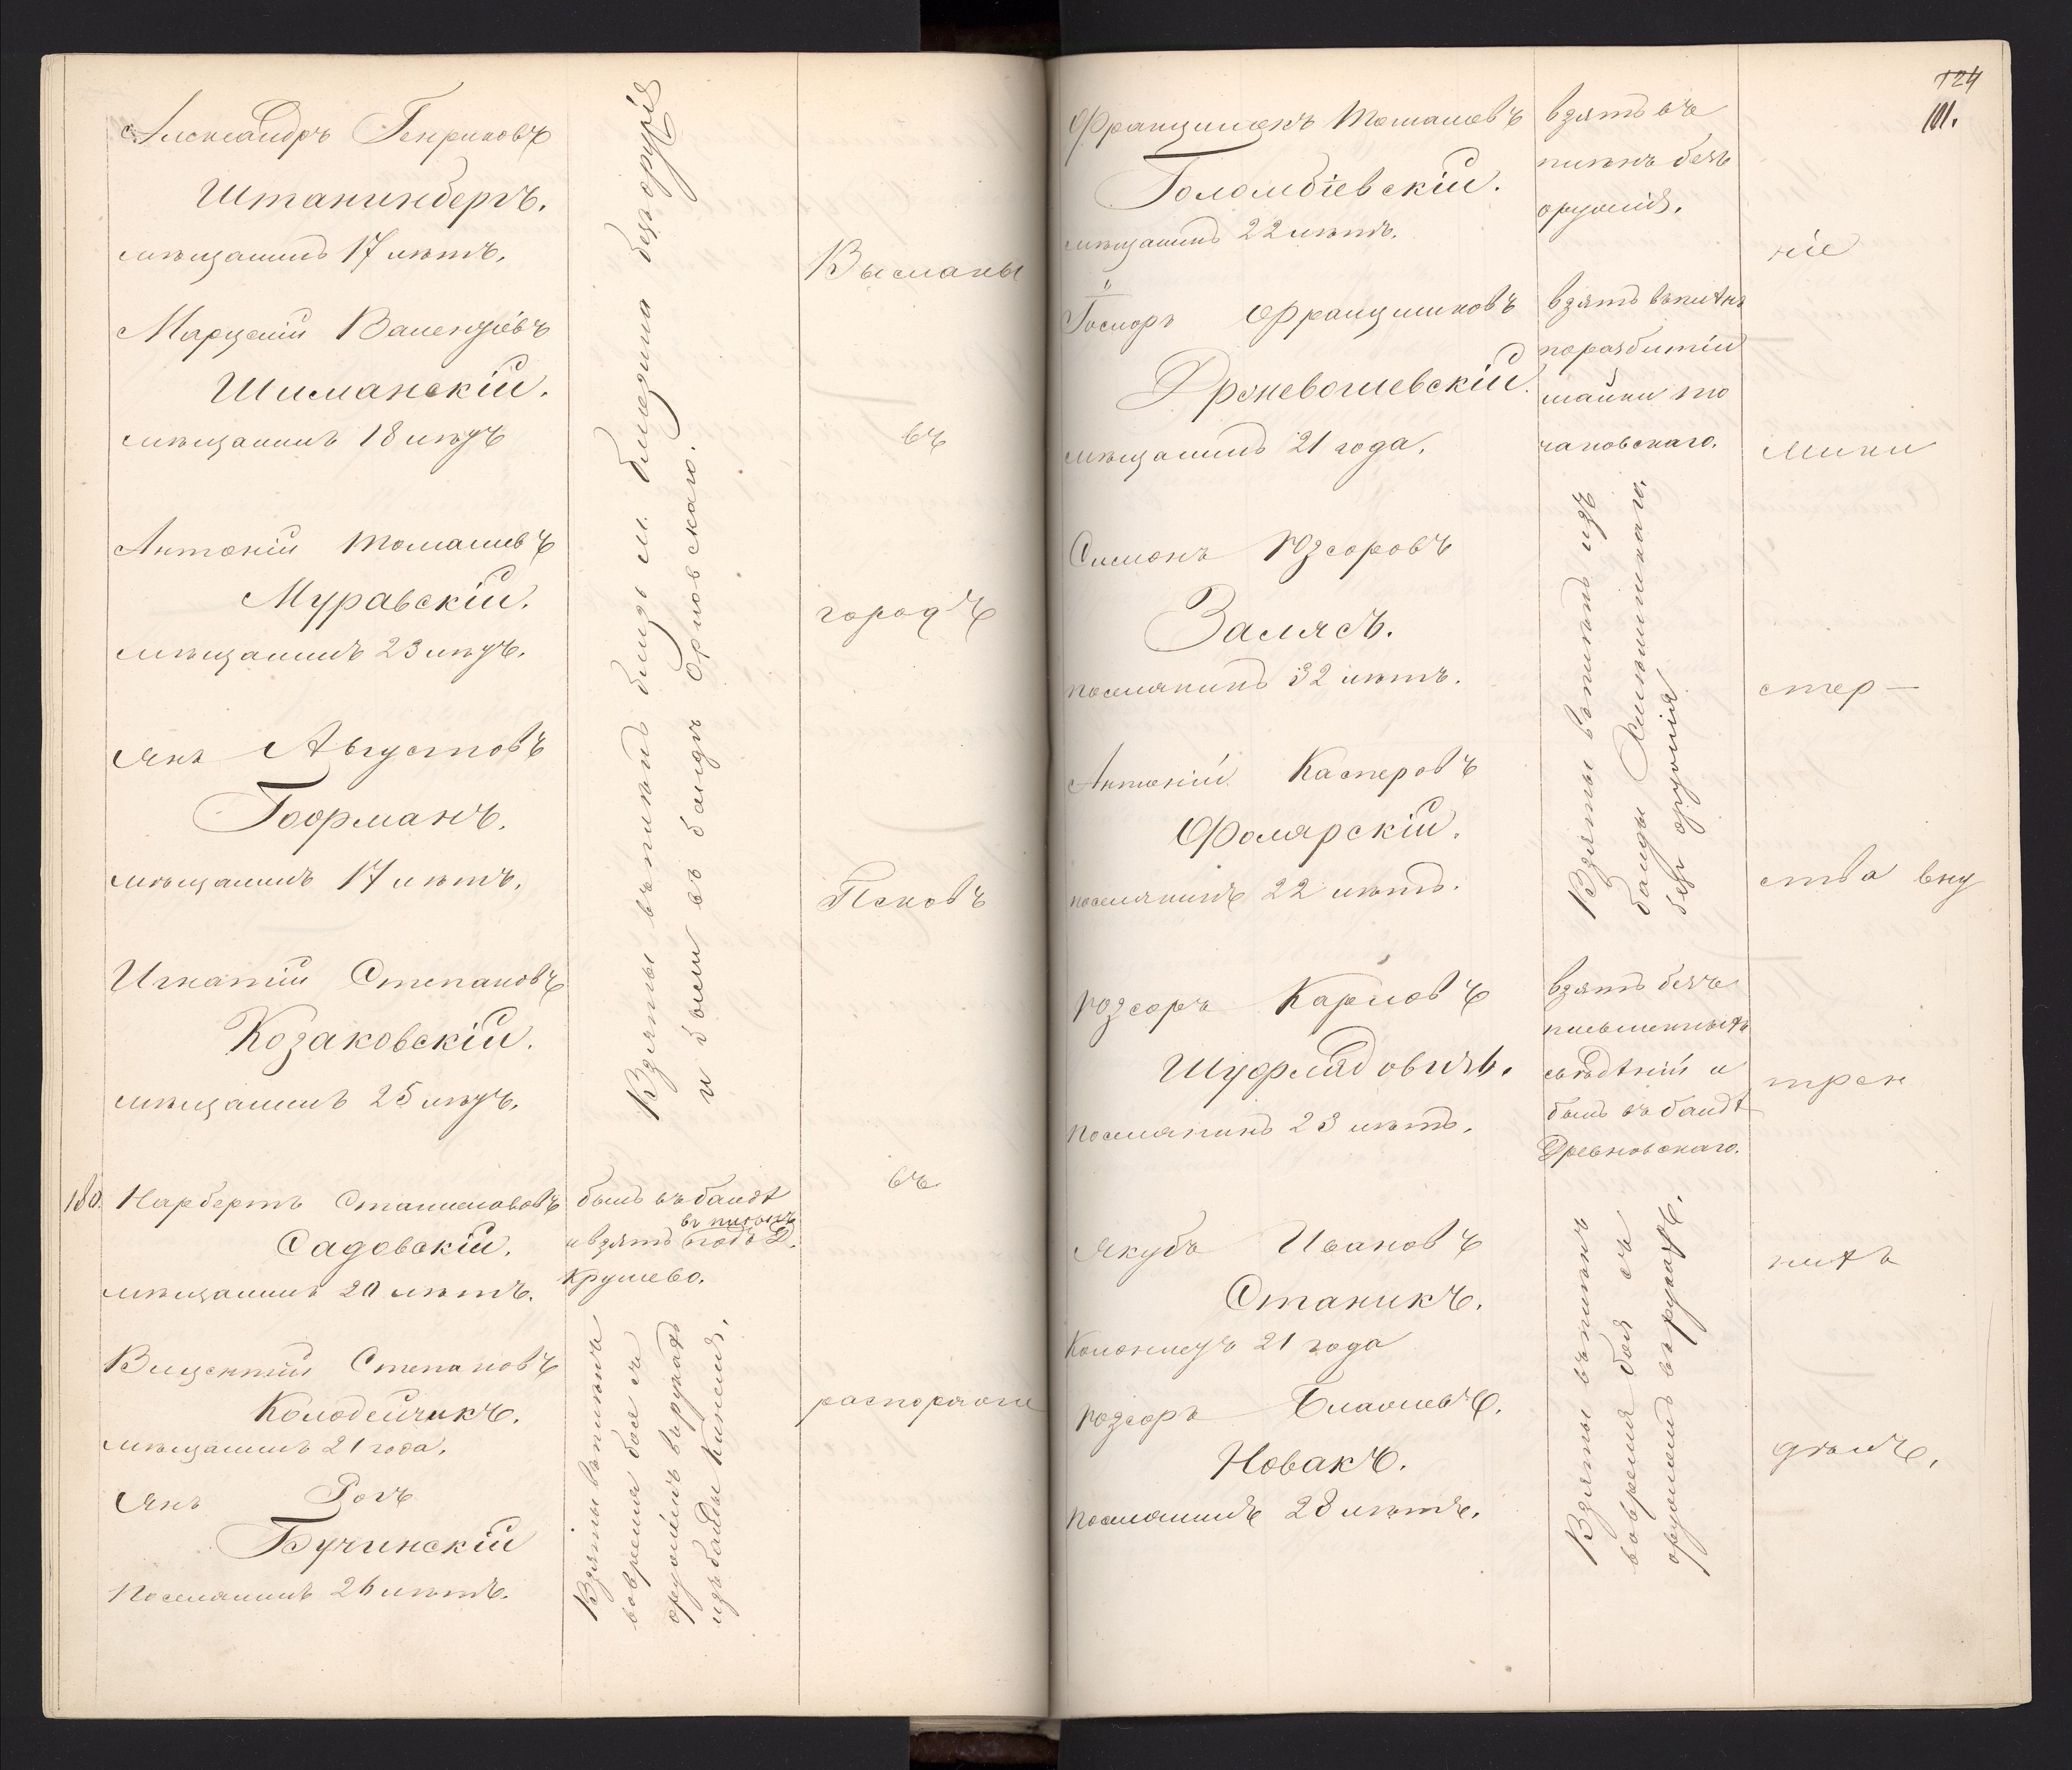 Александръ Генриковъ
Штанинбергъ.
мѣщанинъ 17 лѣтъ.
Марцелій Валентіевъ
Шиманскій.
мѣщанинъ 18 лѣтъ
Антоній Томашевъ
Муравскій.
мѣщанинъ 23 лѣтъ.
Янъ Августовъ
Гоорманъ.
мѣщанинъ 17 лѣтъ.
Игнатій Степановъ
Козаковскій.
мѣщанинъ 25 лѣтъ.
180. Нарбертъ Станиславовъ
Садовскій.
мѣщанинъ 20 лѣтъ.
Вицентій Степановъ
Колодейчикъ.
мѣщанинъ 21 года.
Янъ Рохъ
Бучинскій
Поселянинъ 26 лѣтъ.
Взяты въ плѣнъ близь м. безъ оружія
и были въ бандѣ Орловскаго.
былъ въ бандѣ
въ плѣнъ
и взятъ подъ Д.
Крушево.
Взяты въ плѣнъ
во время боя съ
оружіемъ въ рукахъ
изъ банды
Высланы
въ
городъ
Псковъ
въ
распоряже
124
101.
Францишекъ Томашевъ
Голомбіевскій.
мѣщанинъ 22 лѣтъ.
Госпоръ Францишковъ
Држевошевскій.
мѣщанинъ 21 года.
Симонъ Юзефовъ
Залясъ.
поселянинъ 32 лѣтъ.
Антоній Касперовъ
Фолярскій.
поселянинъ 22 лѣтъ.
Юзефъ Карловъ
Шуфлядовичъ.
поселянинъ 23 лѣтъ.
Якубъ Ивановъ
Станикъ.
Колонистъ 21 года
Юзефъ Блажеевъ.
Новакъ.
поселянинъ 28 лѣтъ.
взятъ въ
плѣнъ безъ
оружія.
взятъ въ плѣнъ
по разбитіи
шайки То
чановскаго.
Взяты въ плѣнъ изъ
банды
безъ оружія
взятъ безъ
письменныхъ
свѣдѣній и
былъ въ бандѣ
Древновскаго.
Взяты въ плѣнъ
во время боя съ
оружіемъ въ рукахъ.
ніе
Мини
стер-
ства вну
трен
нихъ
дѣлъ.